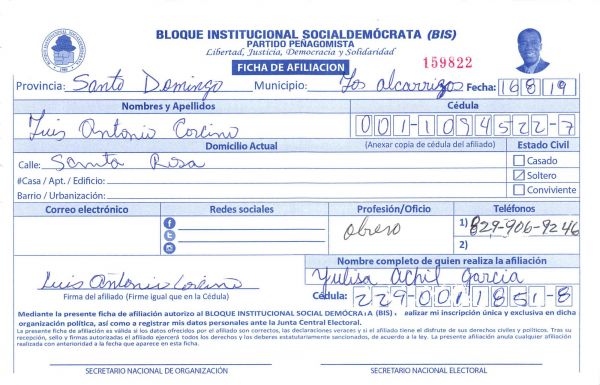 BLOQUE INSTITUCIONAL SOCIALDEMÓCRATA (BIS)
PARTIDO PEÑAGOMISTA
Libertad, Justicia, Democracia y Solidaridad
FICHA DE AFILIACION
159822
Provincia: Santo Domingo Municipio: Los alcarrizos Fecha: 16 8 19
Nombres y Apellidos Cédula
Luis Antonio Corcino 001-1094522-7
Domicilio Actual (Anexar copia de cédula del afiliado) Estado Civil
Calle: Santa Rosa Casado
#Casa / Apt. / Edificio: Soltero
Barrio / Urbanización: Conviviente
Correo electrónico Redes sociales Profesión/Oficio Teléfonos
obrero 1) 829-906-9246
2)
Nombre completo de quien realiza la afiliación
Luis Antonio Corcino Yulisa Achil Garcia
Firma del afiliado (Firme igual que en la Cédula) Cédula: 229-0011851-8
Mediante la presente ficha de afiliación autorizo al BLOQUE INSTITUCIONAL SOCIAL DEMÓCRATA (BIS), realizar mi inscripción única y exclusiva en dicha
organización política, así como a registrar mis datos personales ante la Junta Central Electoral.
La presente ficha de afiliación es válida si los datos ofrecidos por el afiliado son correctos, las declaraciones veraces y si el afiliado tiene el disfrute de sus derechos civiles y políticos. Tras su
recepción, sello y firmas autorizadas el afiliado ejercerá todos los derechos y los deberes estatutariamente sancionados, de acuerdo a la ley. La presente afiliación anula cualquier afiliación
realizada con anterioridad a la fecha que aparece en esta ficha.
SECRETARIO NACIONAL DE ORGANIZACIÓN SECRETARIO NACIONAL ELECTORAL